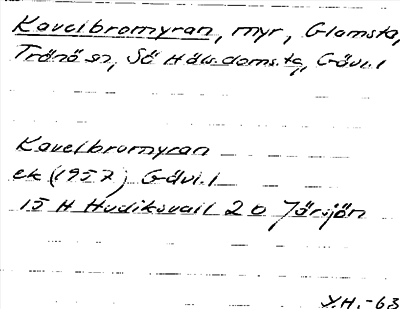 Kavelbromyran, myr, Glamsta,
Trönö sn, Sö Häls. doms. tg, Gävl. l
Kavelbromyran
ek (1957) Gävl. l
15 H Hudiksvall 2 0 Järsjön
Y.H. -63